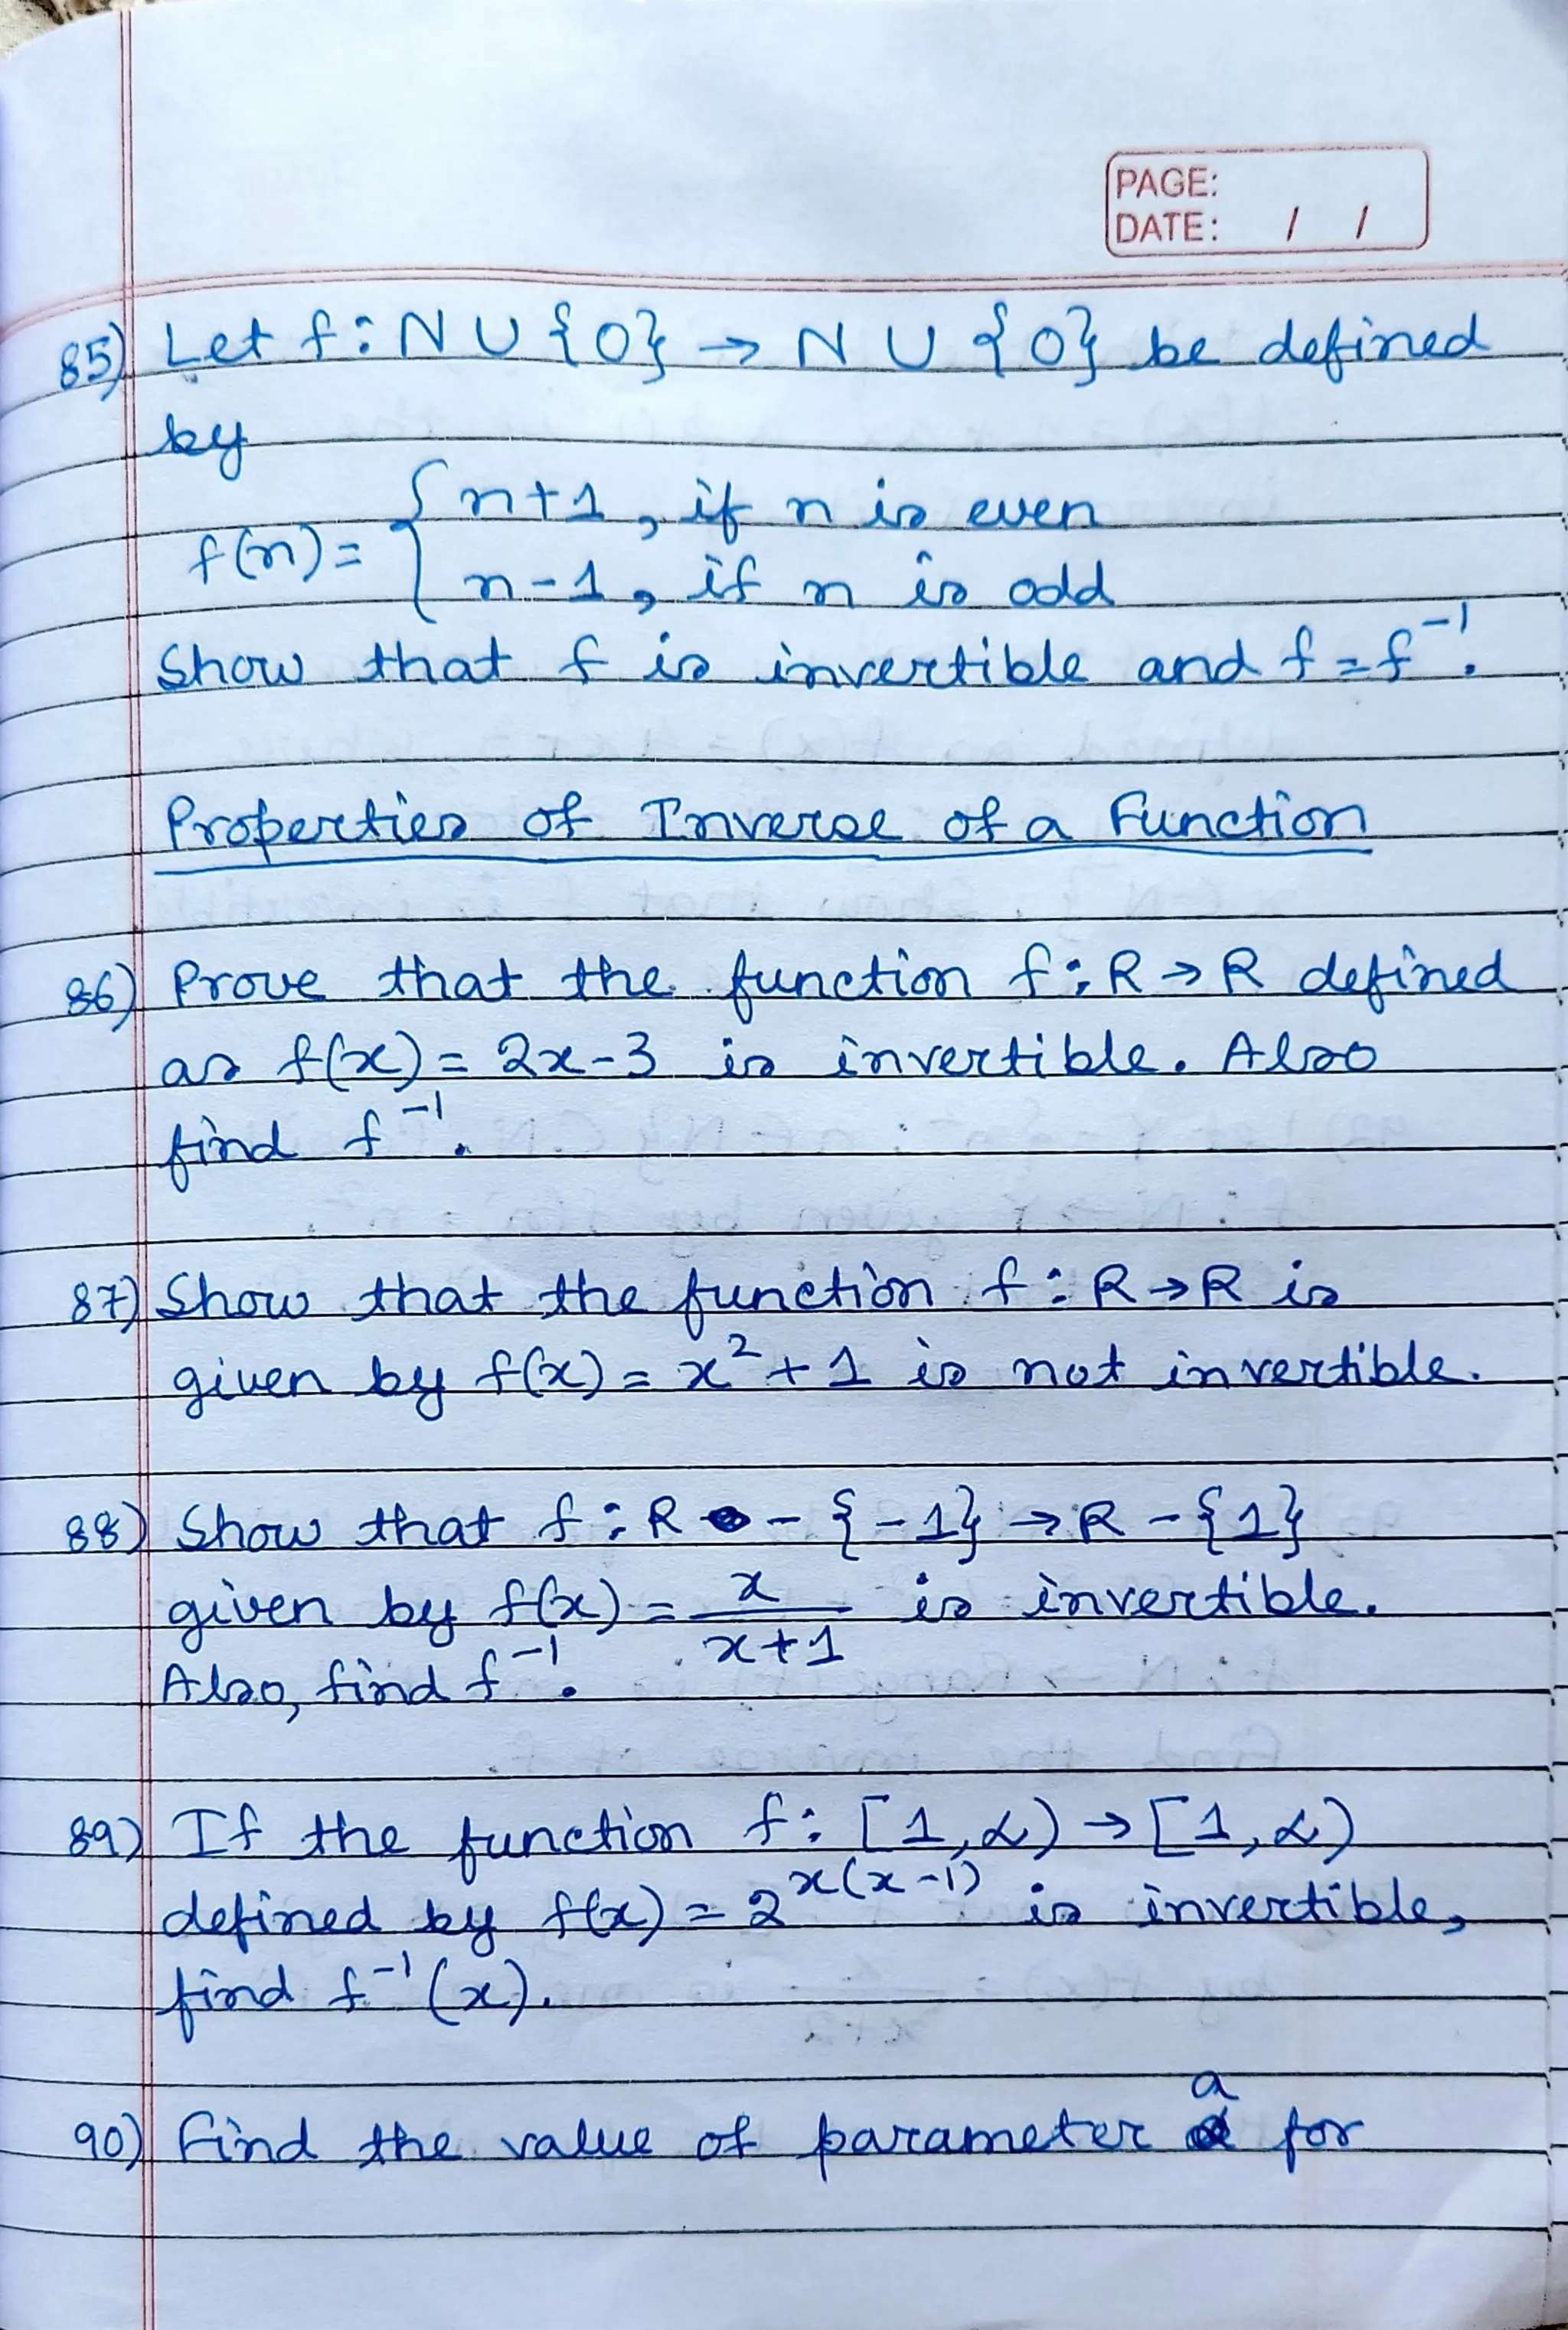 PAGE:
DATE: / /
85) Let f: N U {0} → N U {0} be defined
by
f(n) = { n+1, if n is even
n-1, if n is odd
Show that f is invertible and f = f⁻¹.
Properties of Inverse of a Function
86) Prove that the function f: R → R defined
as f(x) = 2x-3 is invertible. Also
find f⁻¹.
87) Show that the function f: R → R is
given by f(x) = x² + 1 is not invertible.
88) Show that f: R - {-1} → R - {1}
given by f(x) = x/(x+1) is invertible.
Also, find f⁻¹.
89) If the function f: [1, ∞) → [1, ∞)
defined by f(x) = 2^(x(x-1)) is invertible,
find f⁻¹(x).
90) Find the value of parameter a for